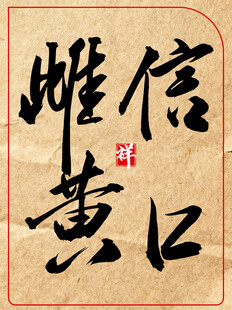 信口
雌黄
祥